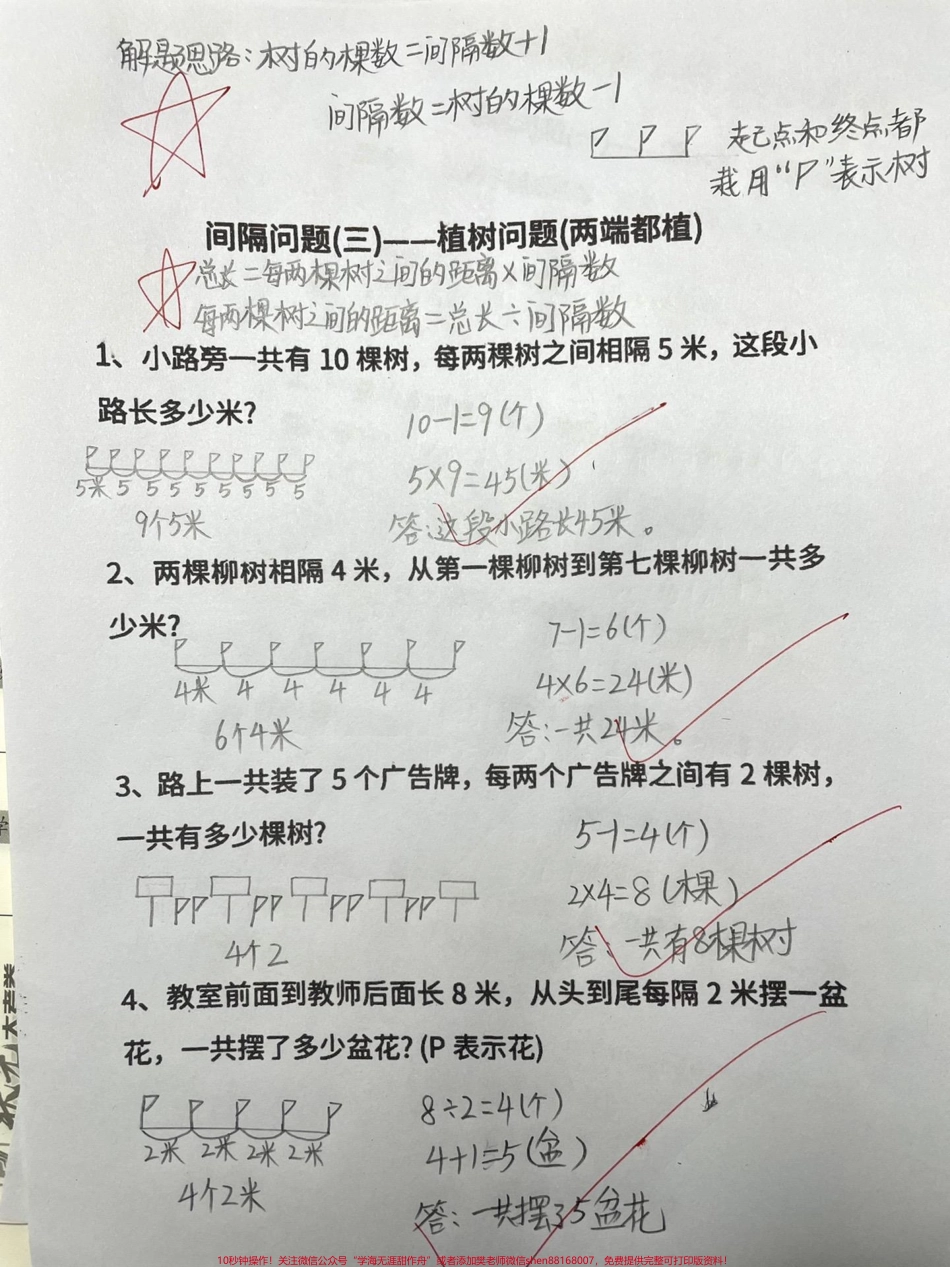 解题思路：树的棵数=间隔数+1
间隔数=树的棵数-1
P P P 起点和终点都
栽用“P”表示树
间隔问题(三)——植树问题(两端都植)
总长=每两棵树之间的距离×间隔数
每两棵树之间的距离=总长÷间隔数
1、小路旁一共有 10 棵树，每两棵树之间相隔 5 米，这段小
路长多少米?
10-1=9(个)
5×9=45(米)
5米 5 5 5 5 5 5 5 5
9个5米
答：这段小路长45米。
2、两棵柳树相隔 4 米，从第一棵柳树到第七棵柳树一共多
少米?
7-1=6(个)
4×6=24(米)
4米 4 4 4 4 4
6个4米
答：一共24米。
3、路上一共装了 5 个广告牌，每两个广告牌之间有 2 棵树，
一共有多少棵树?
5-1=4(个)
2×4=8(棵)
PP PP PP PP
4个2
答：一共有8棵树
4、教室前面到教师后面长 8 米，从头到尾每隔 2 米摆一盆
花，一共摆了多少盆花? (P 表示花)
P P P P P
8÷2=4(个)
2米 2米 2米 2米
4+1=5(盆)
4个2米
答：一共摆了5盆花
10秒钟操作！关注微信公众号“学海无涯甜作舟”或者添加樊老师微信shen88168007，免费提供完整可打印版资料！